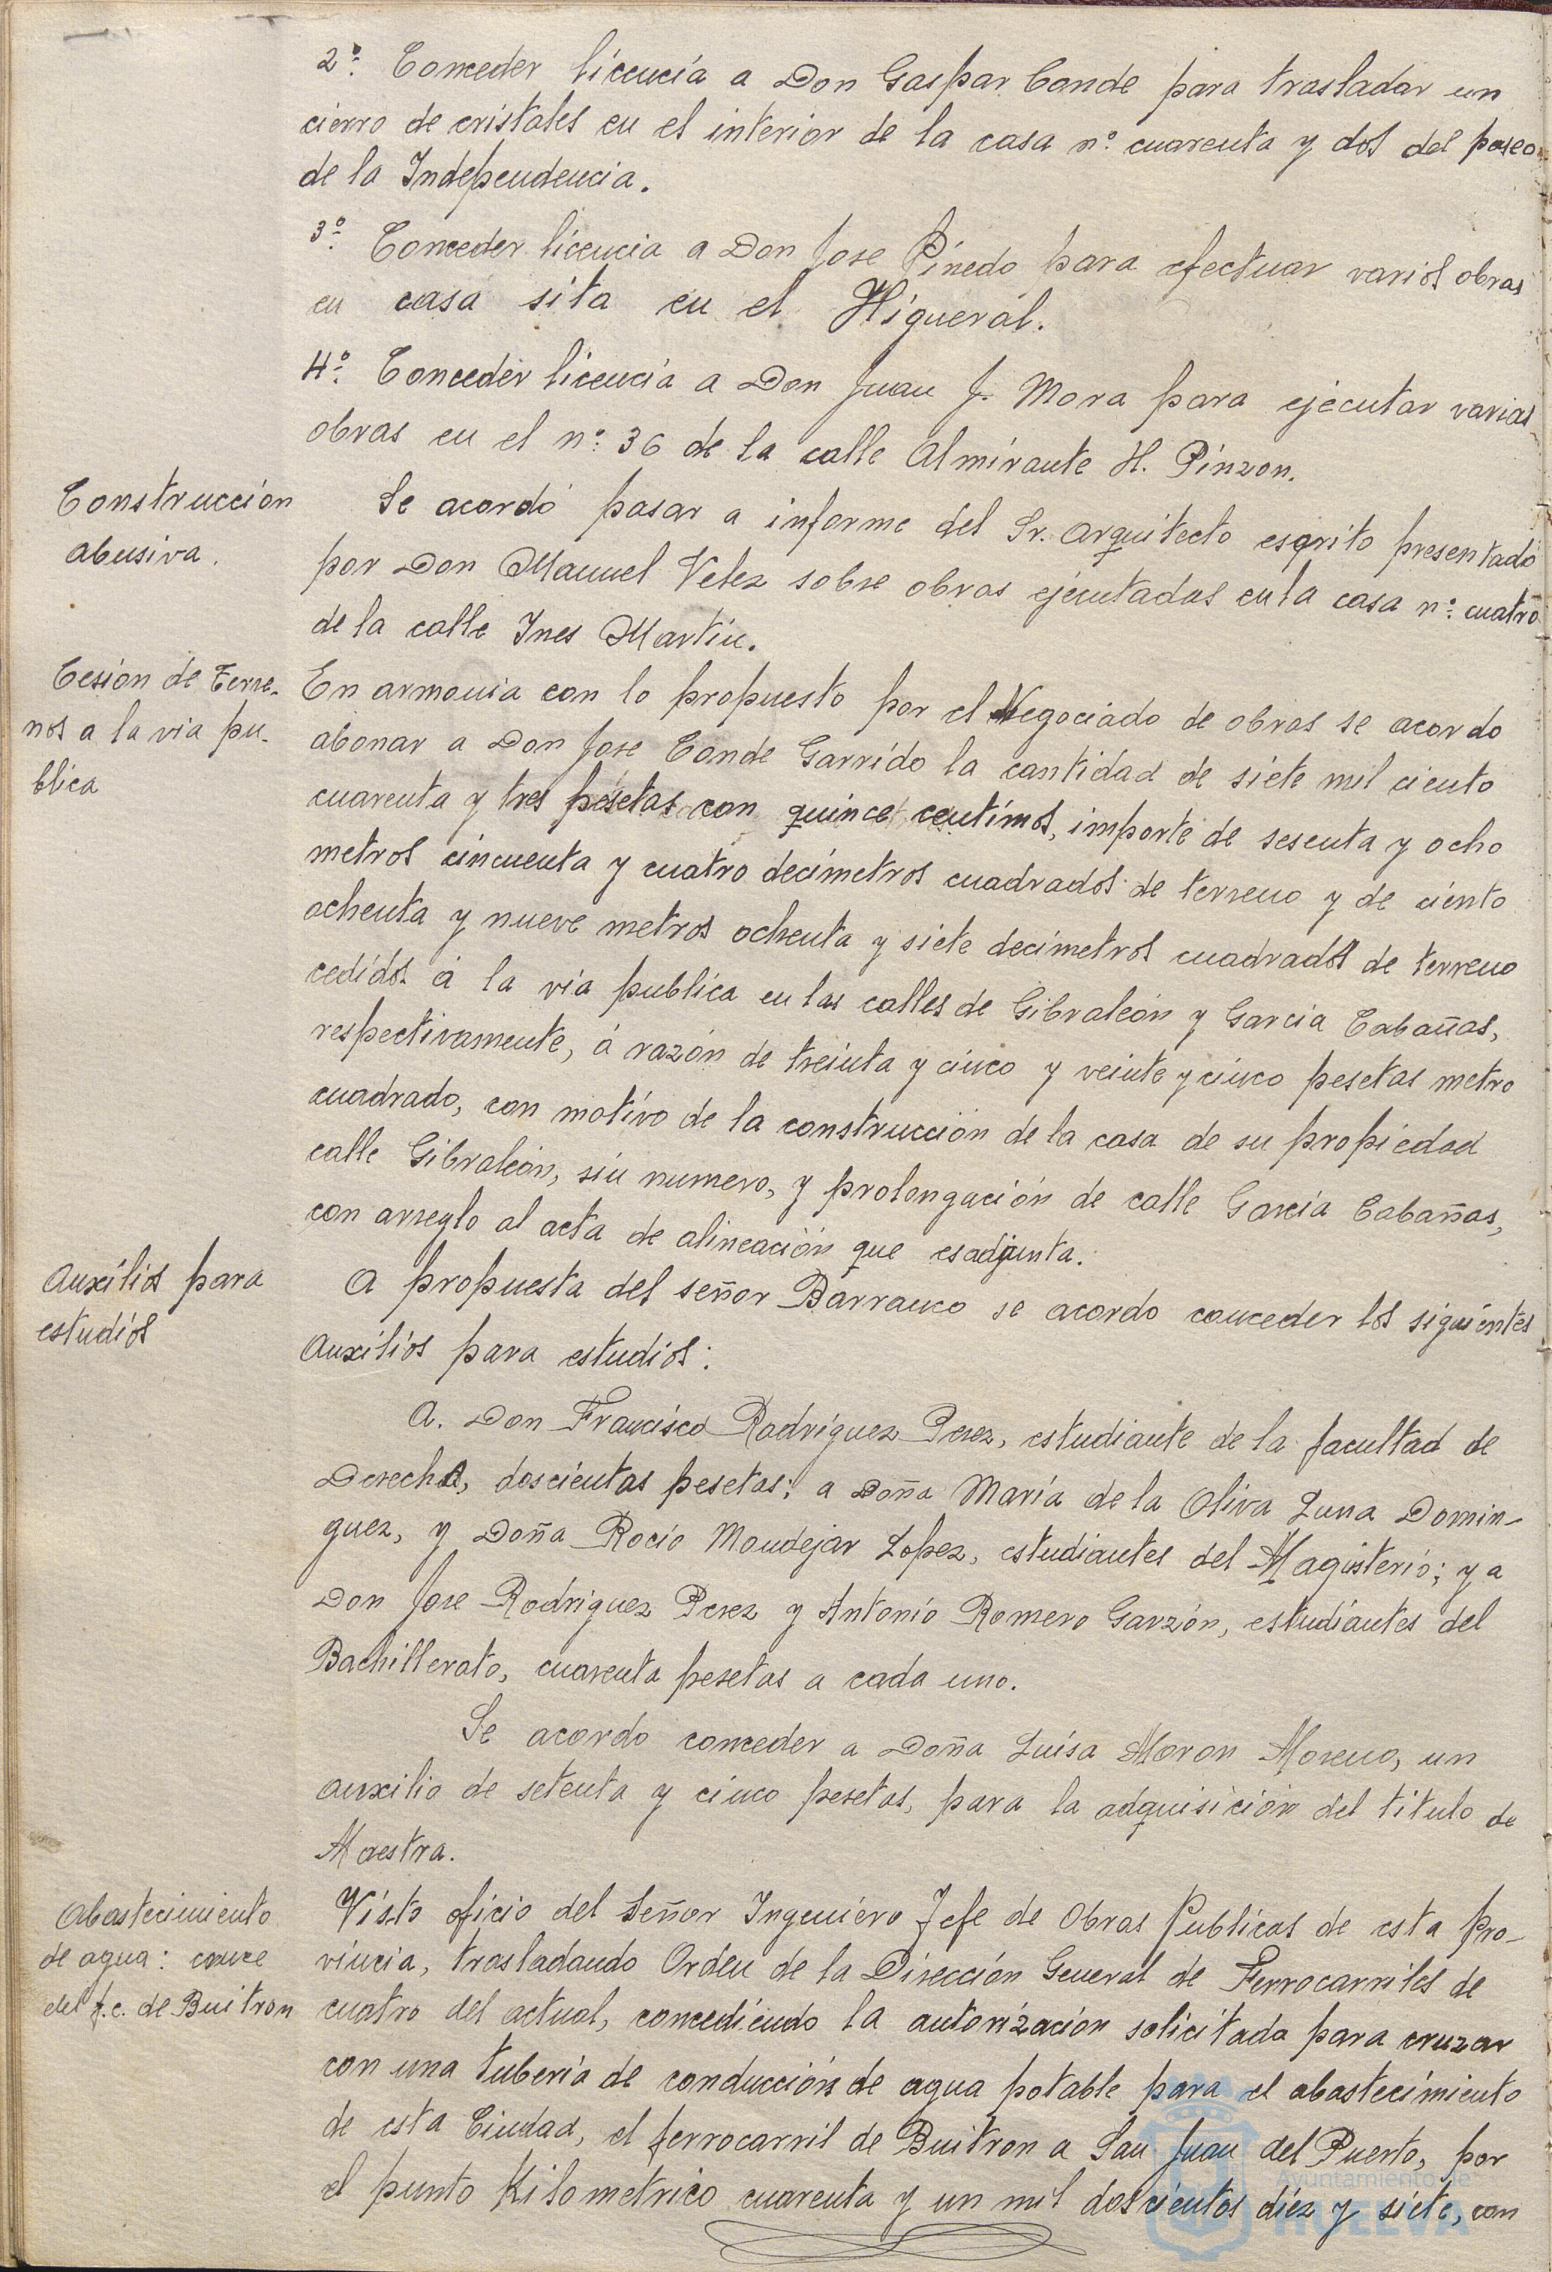 2º. Conceder licencia a Don Gaspar Conde para trasladar un
cierro de cristales en el interior de la casa nº. cuarenta y dos del paseo
de la Independencia.
3º. Conceder licencia a Don Jose Pinedo para efectuar varios obras
en casa sita en el Higueral.
4º. Conceder licencia a Don Juan J. Mora para ejecutar varias
obras en el nº. 36 de la calle Almirante H. Pinzon.
Construcción
abusiva.
Se acordó pasar a informe del Sr. Arquitecto esqrito presentado
por Don Manuel Velez sobre obras ejecutadas en la casa nº. cuatro
de la calle Ines Martin.
Cesión de Terre-
nos a la via pu-
blica
En armonia con lo propuesto por el Negociado de obras se acordo
abonar a Don Jose Conde Garrido la cantidad de siete mil ciento
cuarenta y tres pesetas con quince centimos, importe de sesenta y ocho
metros cincuenta y cuatro decimetros cuadrados de terreno y de ciento
ochenta y nueve metros ochenta y siete decimetros cuadrados de terreno
cedidos á la via publica en las calles de Gibraleón y Garcia Cabañas,
respectivamente, á razón de treinta y cinco y veinte y cinco pesetas metro
cuadrado, con motivo de la construcción de la casa de su propiedad
calle Gibraleón, sin numero, y prolongación de calle Garcia Cabañas,
con arreglo al acta de alineación que esadjunta.
Auxilios para
estudios
A propuesta del señor Barranco se acordo conceder los siguientes
Auxilios para estudios:
A. Don Francisco Rodriguez Perez, estudiante de la facultad de
Derecho, doscientas pesetas; a Doña Maria de la Oliva Luna Domin-
guez, y Doña Rocio Mondejar Lopez, estudiantes del Magisterio; y a
Don Jose Rodriguez Perez y Antonio Romero Garzón, estudiantes del
Bachillerato, cuarenta pesetas a cada uno.
Se acordo conceder a Doña Luisa Moron Moreno, un
auxilio de setenta y cinco pesetas, para la adquisición del titulo de
Maestra.
Abastecimiento
de agua: cruce
del f.c. de Buitron
Visto oficio del Señor Ingeniero Jefe de Obras Publicas de esta pro-
vincia, trasladando Orden de la Dirección General de Ferrocarriles de
cuatro del actual, concediendo la autorización solicitada para cruzar
con una tuberia de conducción de agua potable para el abastecimiento
de esta Ciudad, el ferrocarril de Buitron a San Juan del Puerto, por
el punto Kilometrico cuarenta y un mil doscientos diez y siete, con
Ayuntamiento de
HUELVA